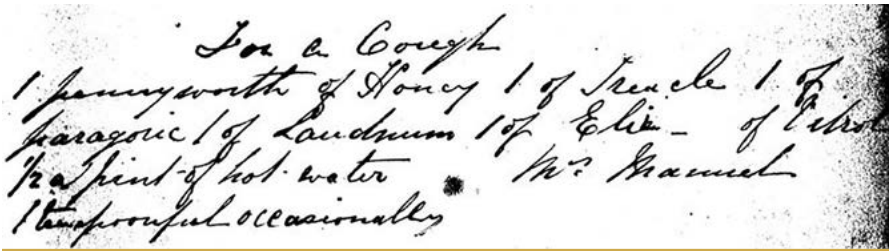 For a Cough
1 pennysworth of Honey 1 of Treacle 1 of
paragoric 1 of Laudnum 1 of Elix - of Vitrol
1/2 a pint of hot water Mrs Manuel
1 teaspoonful occasionally